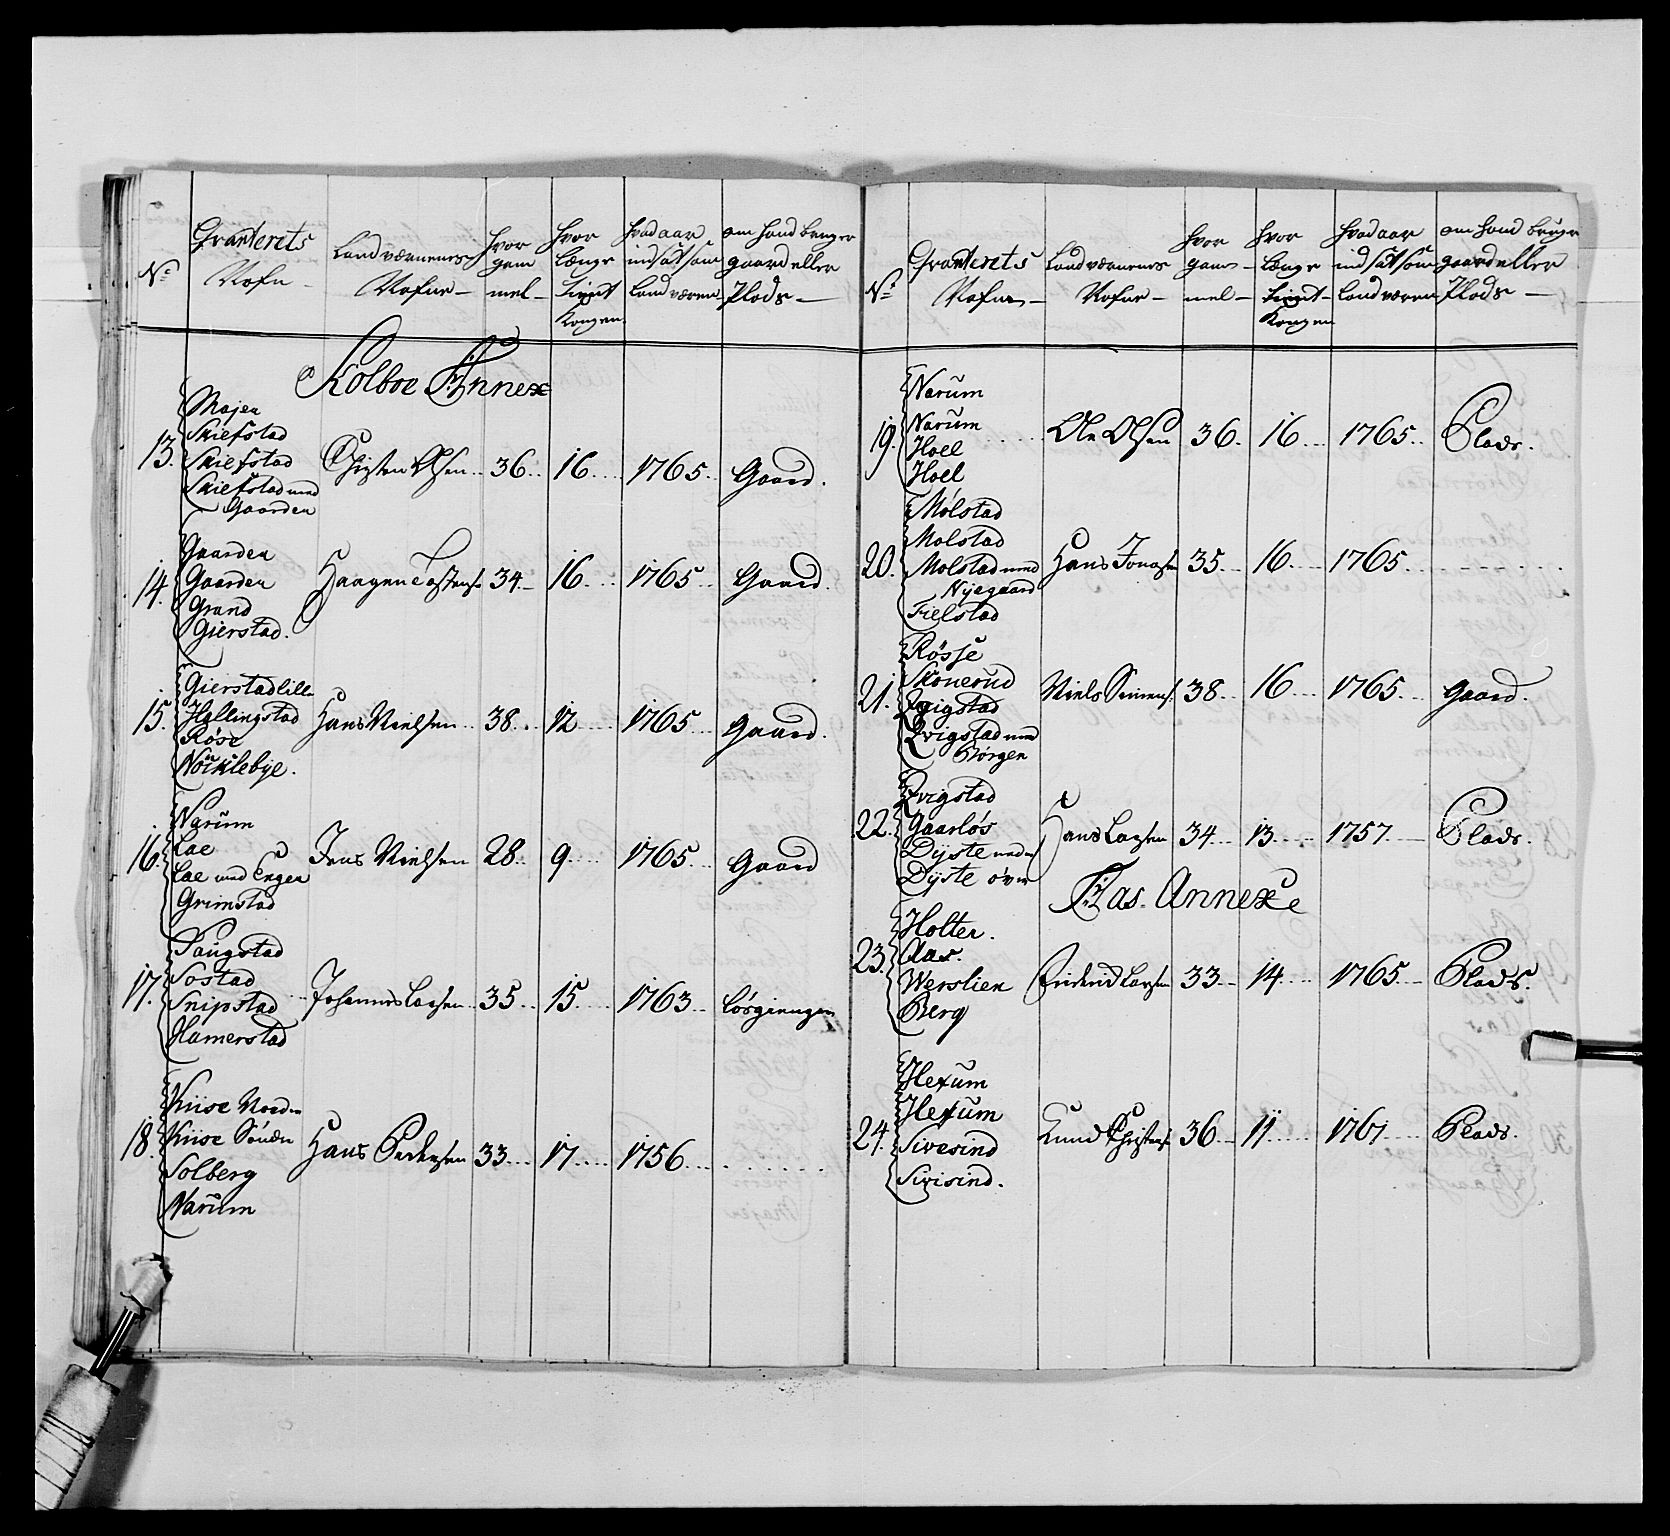 No
Qvarterets
Nafn
Landværnenes
Nafne
hvor
gam
mel
hvor
længe
tient
Kongen
hvad aar
indsat som
Landværn
om hand bruger
gaard eller
Plads
Kolboe Annex
13.
Majer
Skiefstad
Skiefstad
Skiefstad med
Gaarden
Christen Olsen 36 16 1765 Gaard.
14.
Gaarden
Gaarden
Grand
Gierstad.
Haagen 34 16 1765 Gaard.
15.
Gierstadlille
Hallingstad
Røse
Nøcklebye.
Hans Nielsen 38 12 1765 Gaard.
16.
Narum
Lae
Lae med Engen
Grimstad
Jens Nielsen 28 9 1765 Gaard
17.
Paugstad
Sostad
Snipstad
Hamerstad
Johannes Larsen 35 15 1763
18.
Kiise Norden
Kiise Sønden
Solberg
Narum
Hans Pedersen 33 17 1756
No
Qvarterets
Nafne
Landværnenes
Nafne
hvor
gam
mel
hvor
længe
tient
Kongen
hvad aar
indsat som
Landværn
om hand bruger
gaard eller
Plads
19.
Narum
Narum
Hoel
Hoel
Ole Olsen 36. 16 1765 Plads.
20.
Mølstad
Molstad
Molstad med
Nyegaard
Fielstad
Hans Jonasen 35 16 1765
21.
Røsse
Skønerud
Qvigstad
Qvigstad med
Børgen
Niels Simens. 38 16 1765 Gaard.
22.
Qvigstad
Gaarløs
Dyste neder
Dyste øvre
Hans Larsen 34 13 1757 Plads.
Aas Annexe
23.
Holter.
Aas.
Werslien
Berg
Larsen 33 14 1765 Plads.
24.
Hexum
Hexum
Sivesind
Sivisind.
Knud Christens. 36 11 1761 Plads.